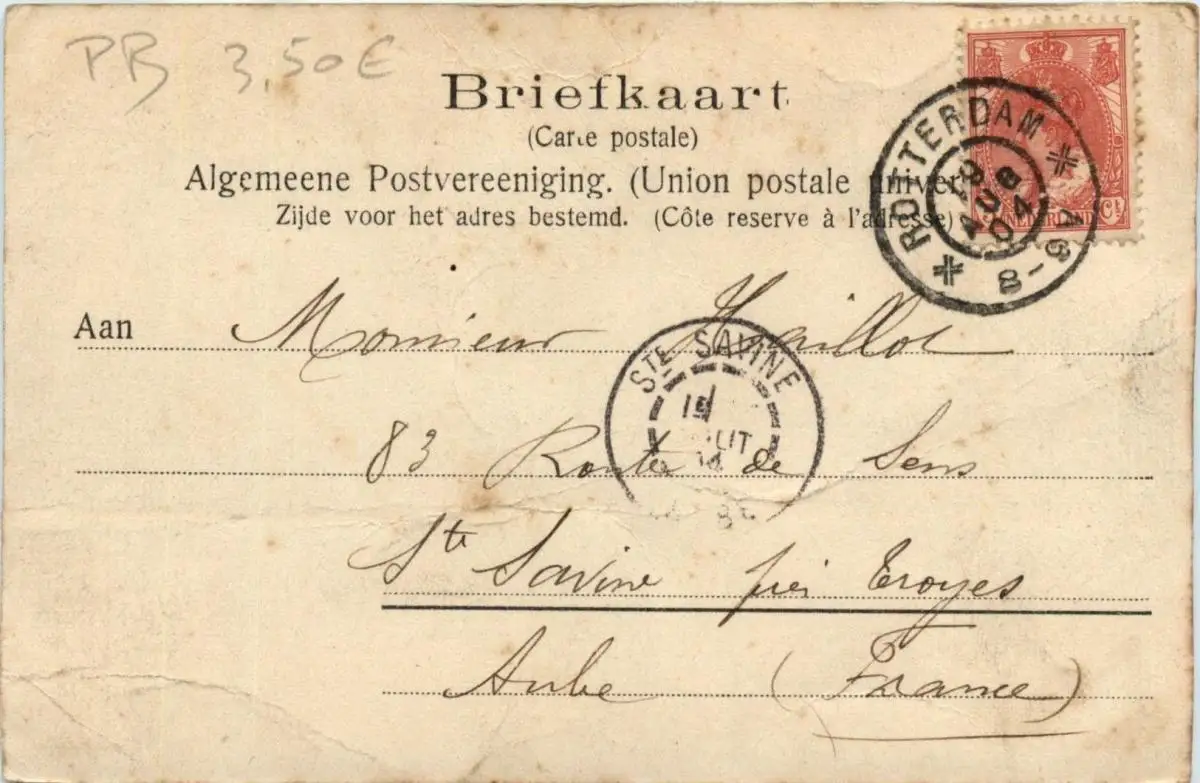 PB 3,50€
Briefkaart
(Carte postale)
Algemeene Postvereeniging. (Union postale univer
Zijde voor het adres bestemd. (Côte reserve à l'adresse)
ROTTERDAM
AUG
04
8-9
Ct
NEDERLAND
Aan Monsieur Haillot
STE SAVINE
83 Route de Sens
Ste Savine près Troyes
Aube (France)